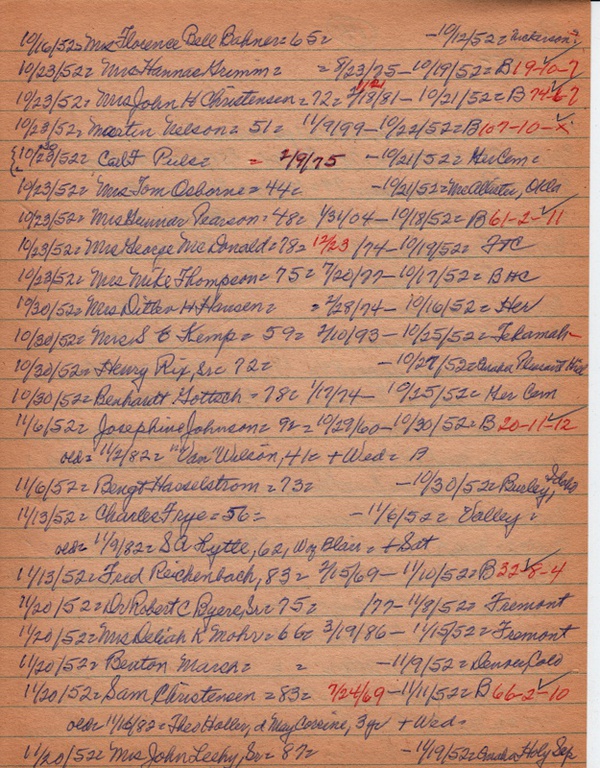 10/16/52= Mrs Florence Bell Bahner= 65= -10/12/52= Nickerson
10/23/52= Mrs Hannac Grimm= = 8/23/75-10/19/52= B 19-10-7
10/23/52= Mrs John H Christensen= 72= 2/18/81-10/21/52= B 74-6-7
10/23/52= Martin Nelson= 51= 11/9/99-10/22/52= B 107-10-X
10/23/52= Carl F Puls= = 2/9/75 -10/21/52= Her Cem=
10/23/52= Mrs Tom Osborne= 44= -10/21/52= McAllister, Okla
10/23/52= Mrs Gunnar Pearson= 48= 1/31/04-10/18/52= B 61-2-11
10/23/52= Mrs George McDonald= 78= 12/23/74-10/19/52= FTC
10/23/52= Mrs Mike Thompson= 75= 7/20/77-10/17/52= BHC
10/30/52= Mrs Ditlev H Hansen= = 2/28/74-10/16/52= Her
10/30/52= Mrs S E Kemp= 59= 2/10/93-10/25/52= Tekamah-
10/30/52= Henry Rix, Sr= 72= -10/27/52= Omaha Pleasant Hill
10/30/52= Benhardt Gottsch= 78= 1/17/74- 10/25/52= Her Cem
11/6/52= Josephine Johnson= 92= 10/29/60-10/30/52= B 20-11-12
OEH= 11/2/82= "Van" Wilson, 41= + Wed= B
11/6/52= Bengt Hasselstrom= 73= -10/30/52= Burley, Idaho
11/13/52= Charles Frye= 56= -11/6/52= Valley=
OEH= 11/9/82= SA Lyttle, 62, Wy Blair= + Sat
11/13/52= Fred Reichenbach, 83= 2/15/69-11/10/52= B 32-8-4
11/20/52= Dr Robert C Byers, Sr= 75= /77-11/8/52= Fremont
11/20/52= Mrs Deliah K Mohr= 66= 3/19/86-11/15/52= Fremont
11/20/52= Benton March= = -11/9/52= Denver Colo
11/20/52= Sam Christensen= 83= 7/24/69-11/11/52= B 66-2-10
OEH= 11/16/82= Theo Holler, d May Corrine, 3yr + Wed=
11/20/52= Mrs John Leehy, Sr= 87= -11/19/52= Omaha Holy Sep